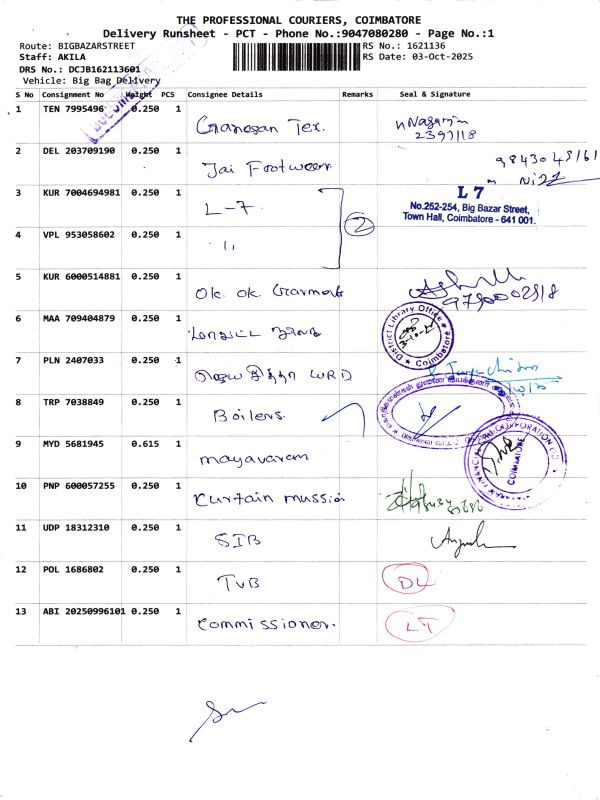 THE PROFESSIONAL COURIERS, COIMBATORE
Delivery Runsheet - PCT - Phone No.:9047080280 - Page No.:1
Route: BIGBAZARSTREET
RS No.: 1621136
Staff: AKILA
RS Date: 03-Oct-2025
DRS No.: DCJB162113601
Vehicle: Big Bag Delivery
S No Consignment No Weight PCS Consignee Details Remarks Seal & Signature
1 TEN 7995496 0.250 1 Ganesan Tex.
2 DEL 203709190 0.250 1 Jai Footwear
3 KUR 7004694981 0.250 1 L-7 2 L 7
No.252-254, Big Bazar Street,
Town Hall, Coimbatore - 641 001.
4 VPL 953058602 0.250 1 "
5 KUR 6000514881 0.250 1 Ok. Ok. Garments
6 MAA 709404879 0.250 1 மாவட்ட நூலக
District Library Office
Coimbatore
7 PLN 2407033 0.250 1 WRD
8 TRP 7038849 0.250 1 Boilers.
9 MYD 5681945 0.615 1 mayavaram
COIMBATORE
10 PNP 600057255 0.250 1 Curtain mission
11 UDP 18312310 0.250 1 SIB
12 POL 1686802 0.250 1 TVB DL
13 ABI 20250996101 0.250 1 Commissioner. LT